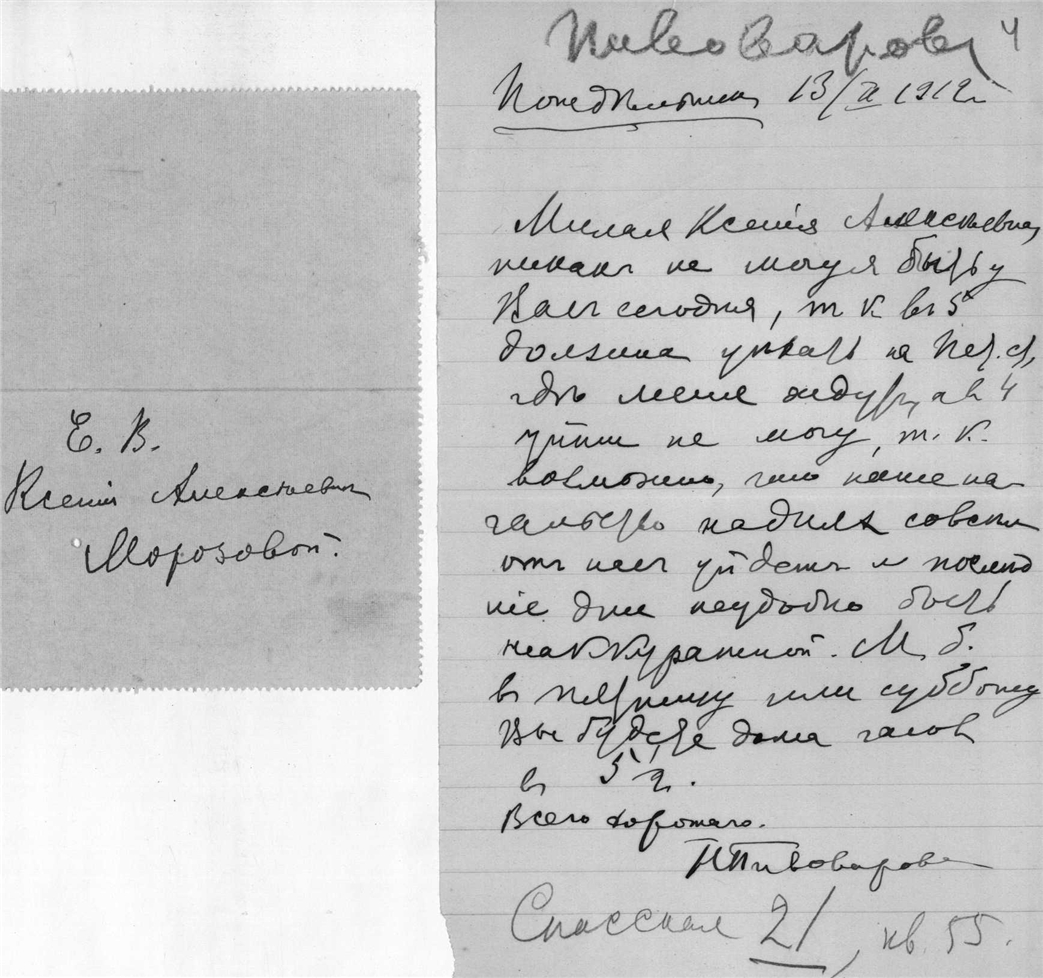 Е. В.
Ксении Алексеевне
Морозовой.
Пивоварова 4
Понедельникъ 13/II 1912 г.
Милая Ксенія Алексѣевна,
никакъ не могу я быть у
Васъ сегодня, т к въ 5
должна уѣхать на
гдѣ меня ждутъ, а въ 4
уйти не могу, т. к.
возможно, что наше на-
чальство на дняхъ совсѣмъ
отъ насъ уйдетъ и послѣд
ніе дни неудобно быть
неаккуратной. М. б.
въ пятницу или субботу
Вы будете дома часов
в 5 ч.
Всего хорошаго.
Н Пивоварова
Спасская 21, кв. 55.